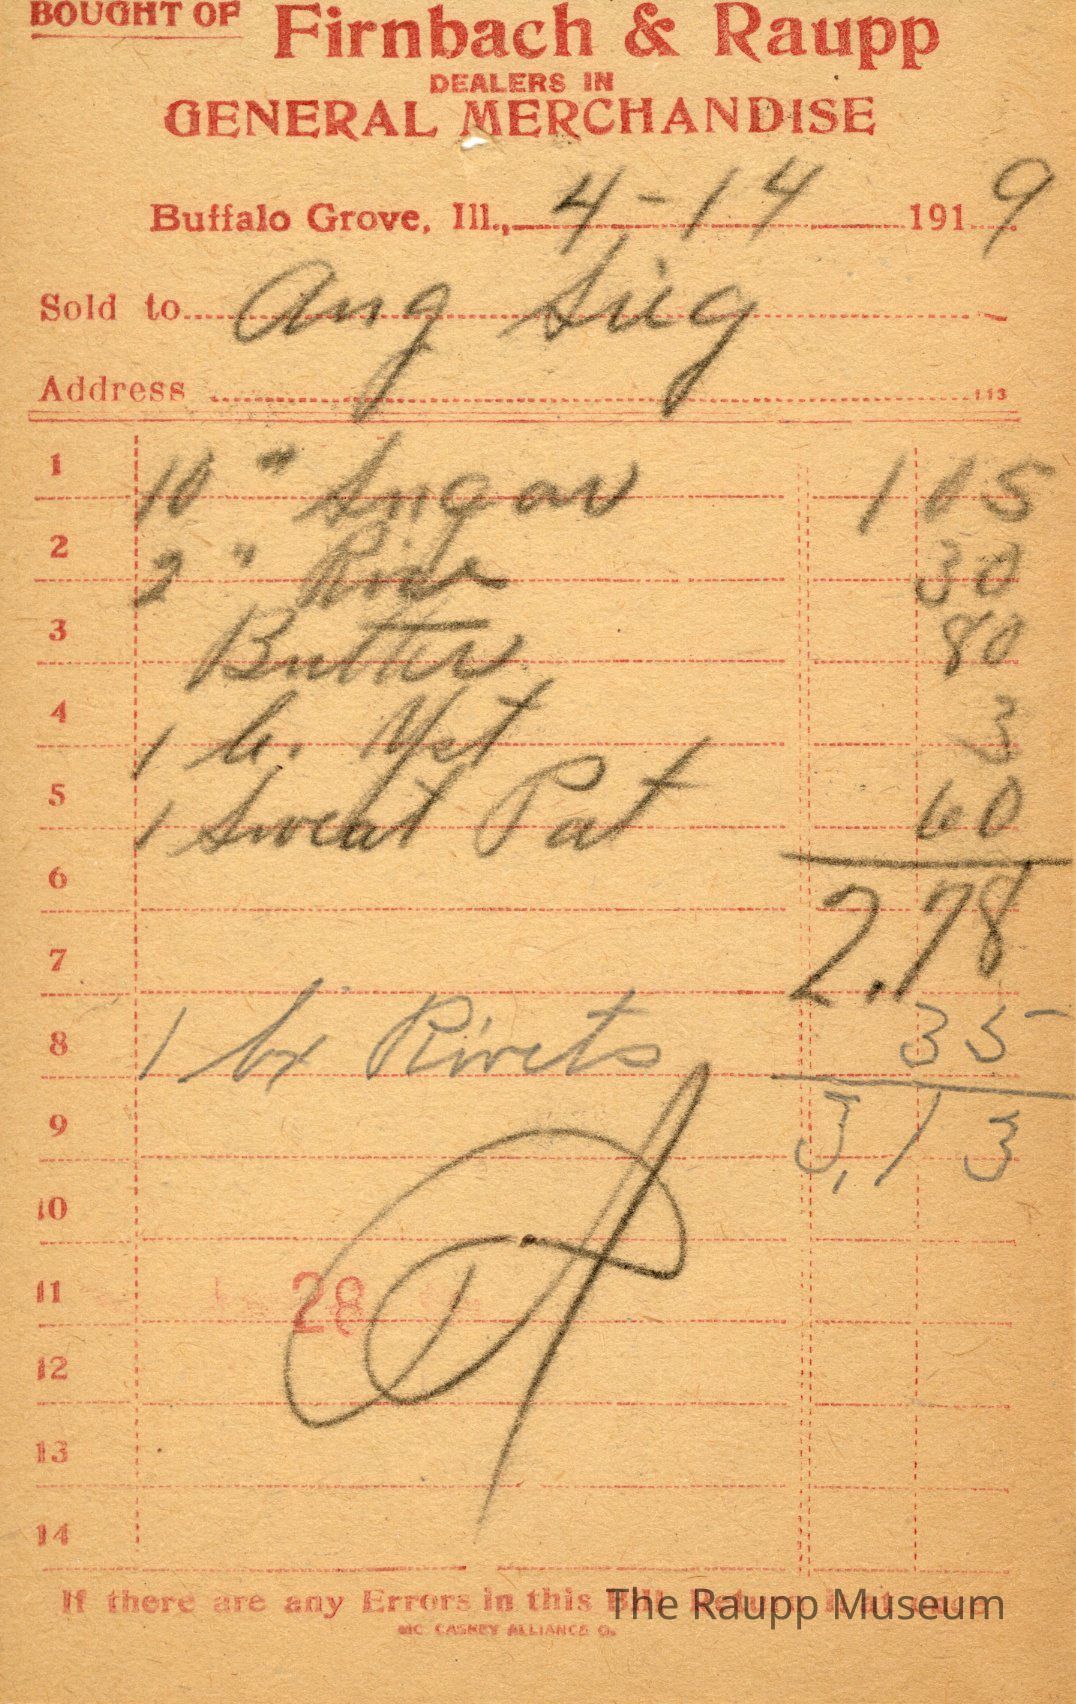 BOUGHT OF Firnbach & Raupp
DEALERS IN
GENERAL MERCHANDISE
Buffalo Grove, Ill., 4-14 1919
Sold to Aug Sieg
Address 113
1 10 " Sugar 1 05
2 2 " Rice 30
3 Butter 80
4 1 c. Yst 3
5 1 Sweat Pat 60
6
2.78
7
8 1 bx Rivets 35
9 3.13
10
11 28
12
13
14
If there are any Errors in this Bill Return it at once
The Raupp Museum
MC CASKEY ALLIANCE O.